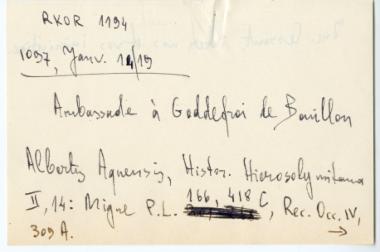 RKOR 1194
1097, Janv. 14/19
Ambassade à Goddefroi de Bouillon
Albertus Aquensis, Histor. Hierosolymitana
II, 14: Migne P.L. 166, 418 C, Rec. Occ. IV,
309 A. →